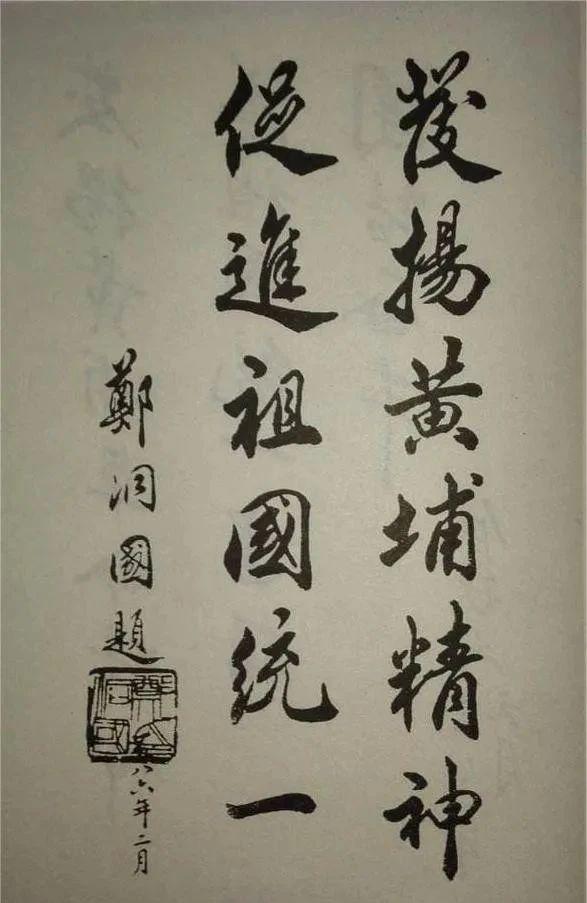 發揚黃埔精神
促進祖國統一
鄭洞國題
八六年二月